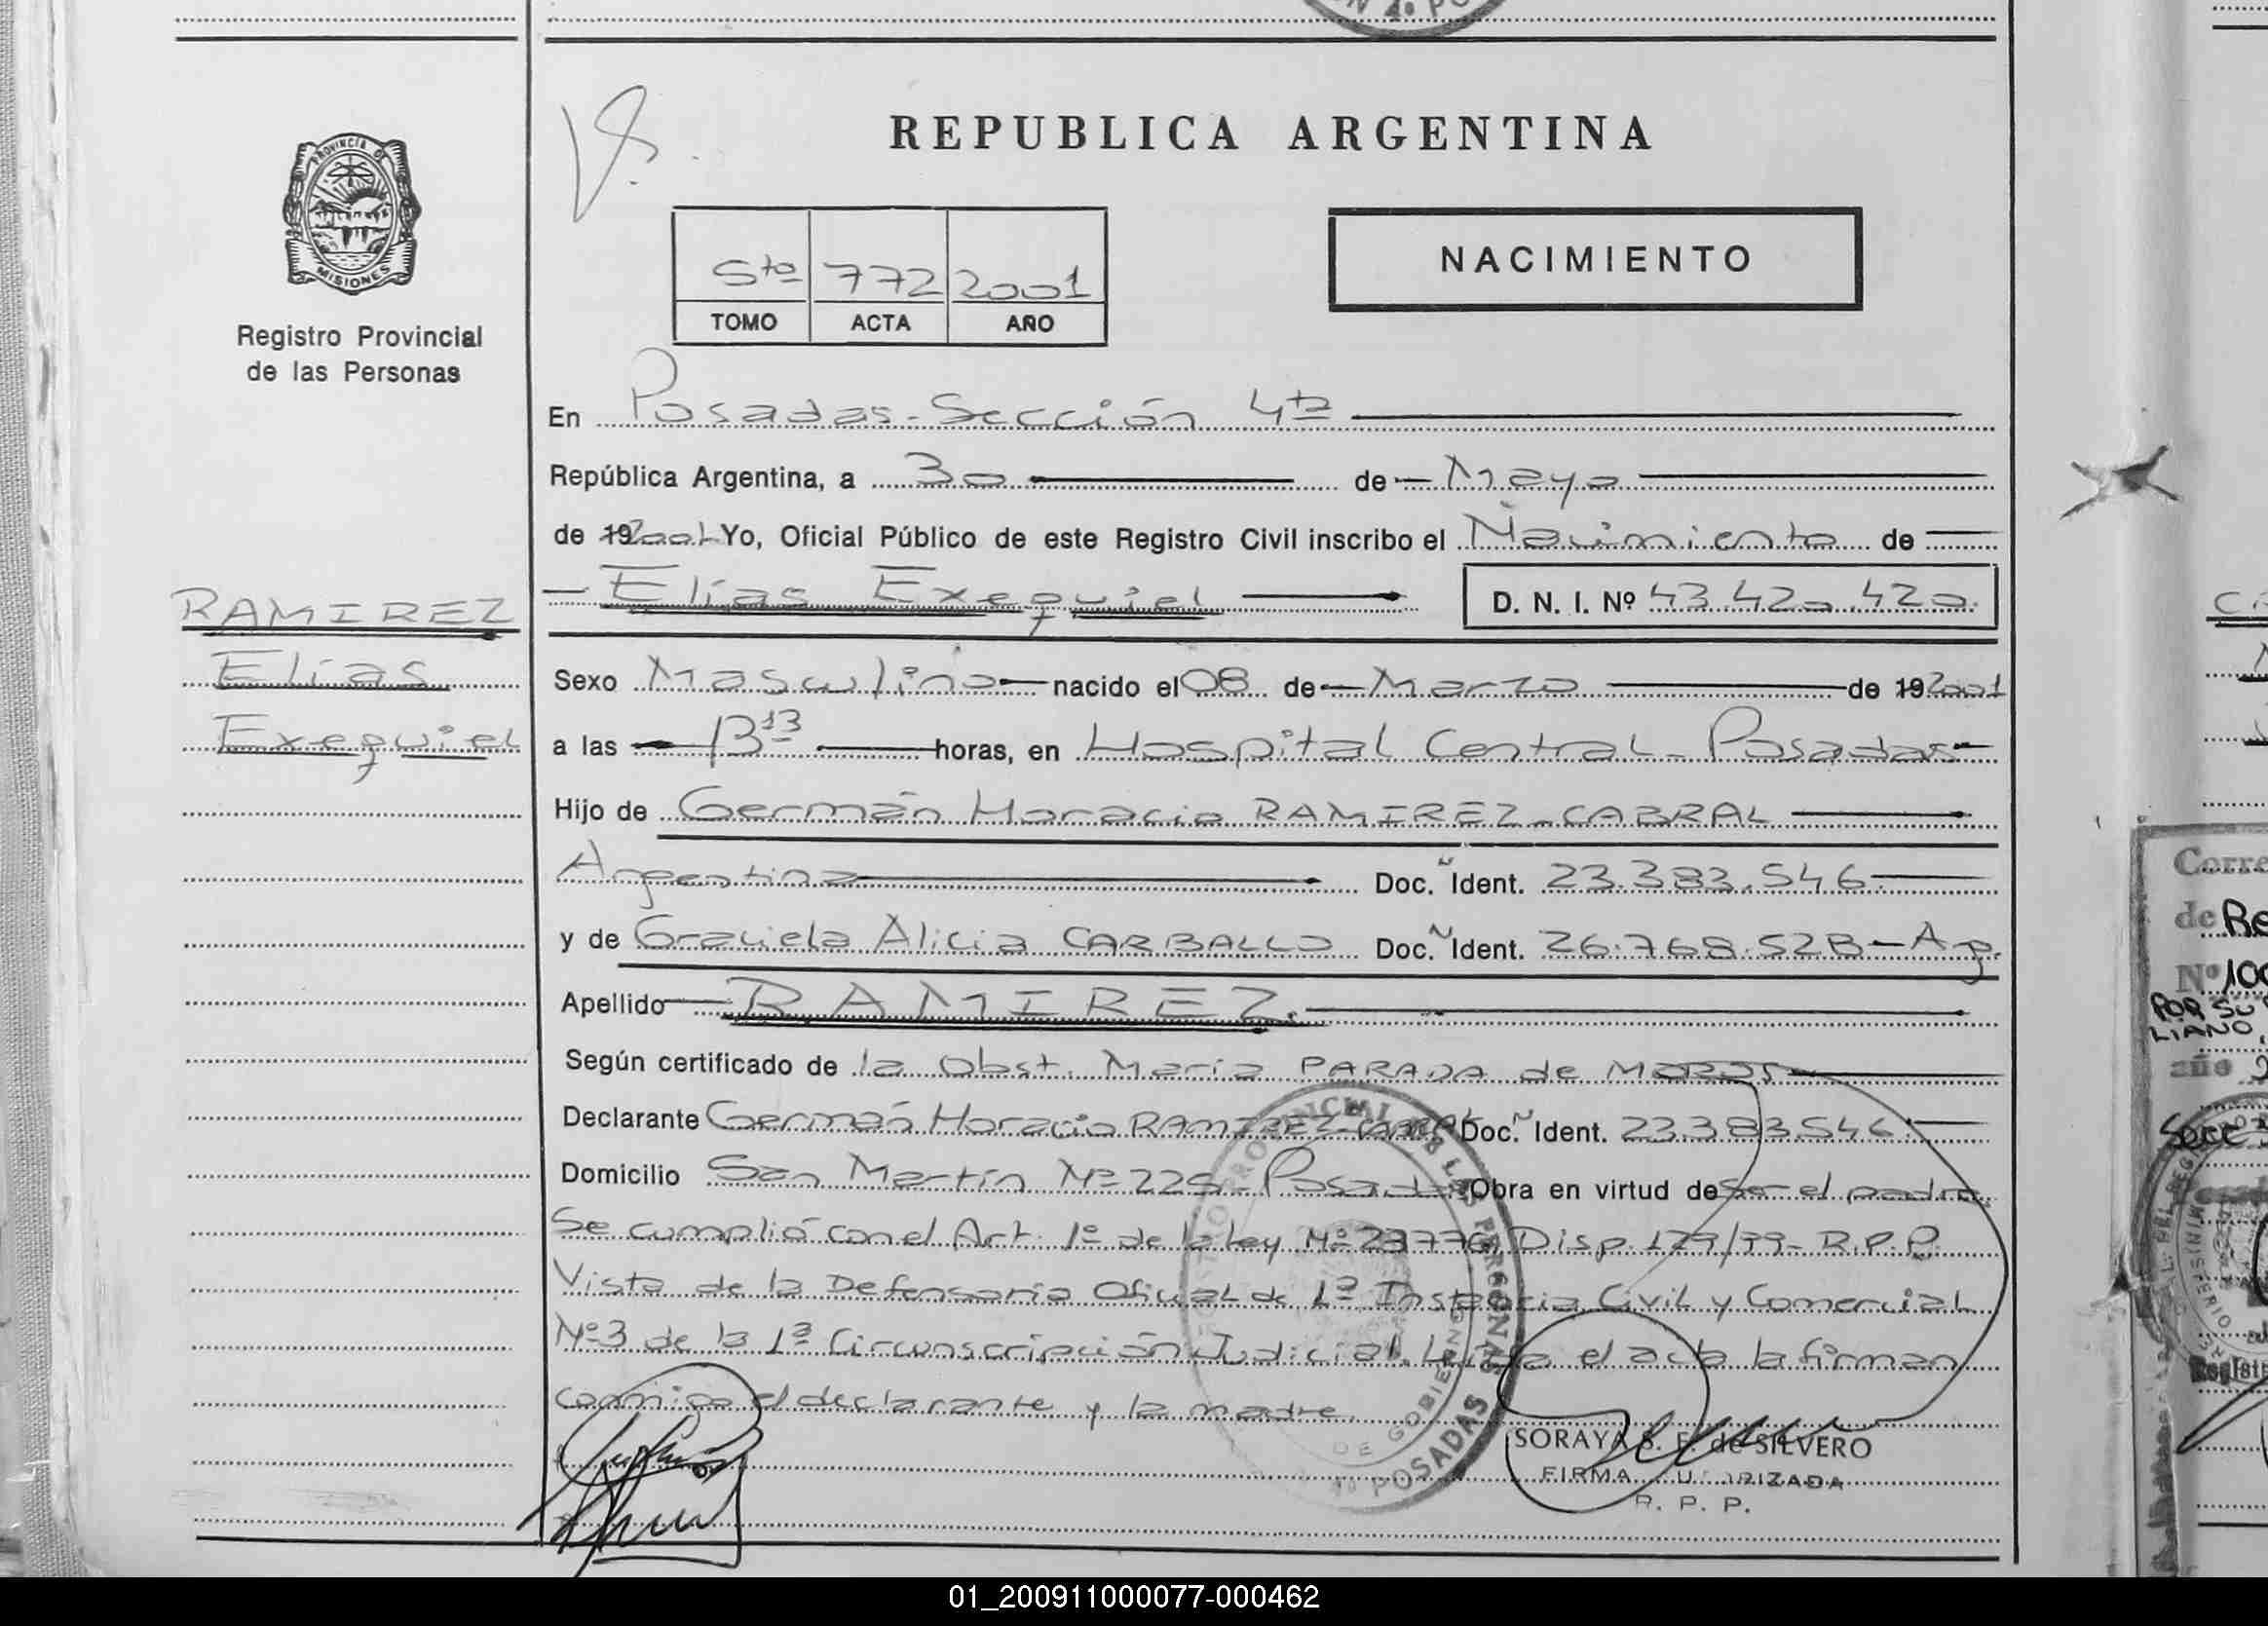 REPUBLICA ARGENTINA
PROVINCIA D
MISIONES
Registro Provincial
de las Personas
5to 772 2001
TOMO ACTA AÑO
NACIMIENTO
En Posadas - Sección 4ta
República Argentina, a 30 de Mayo
de 19 2001 Yo, Oficial Público de este Registro Civil inscribo el Nacimiento de
Elías Exequiel D. N. I. Nº 43.420.420.
RAMIREZ
Elías
Exequiel
Sexo Masculino nacido el 08 de Marzo de 19 2001
a las 13 13 horas, en Hospital Central - Posadas
Hijo de Germán Horacio RAMIREZ - CABRAL
Argentina Doc. Ident. 23.383.546
y de Graciela Alicia CARBALLO Doc. Ident. 26.768.528 - Arg.
Apellido RAMIREZ.
Según certificado de la Obst. María PARADA de
Declarante Germán Horacio RAMIREZ - CABRAL Doc. Ident. 23.383.546
Domicilio San Martín Nº 225 - Posadas Obra en virtud de ser el padre.
Se cumplió con el Art. 1º de la Ley Nº 23776, Disp. R.P.P.
Vista de la Defensoría Oficial de 1ª Instancia Civil y Comercial
Nº 3 de la 1ª Circunscripción Judicial. Leída el acta la firman
conmigo el declarante y la madre.
DE GOBIERNO
POSADAS
SORAYA S. F. de SILVERO
FIRMA AUTORIZADA
R. P. P.
Corre
de Re
Nº 100
POR SU
LIANO,
año
Secc
01_200911000077-000462